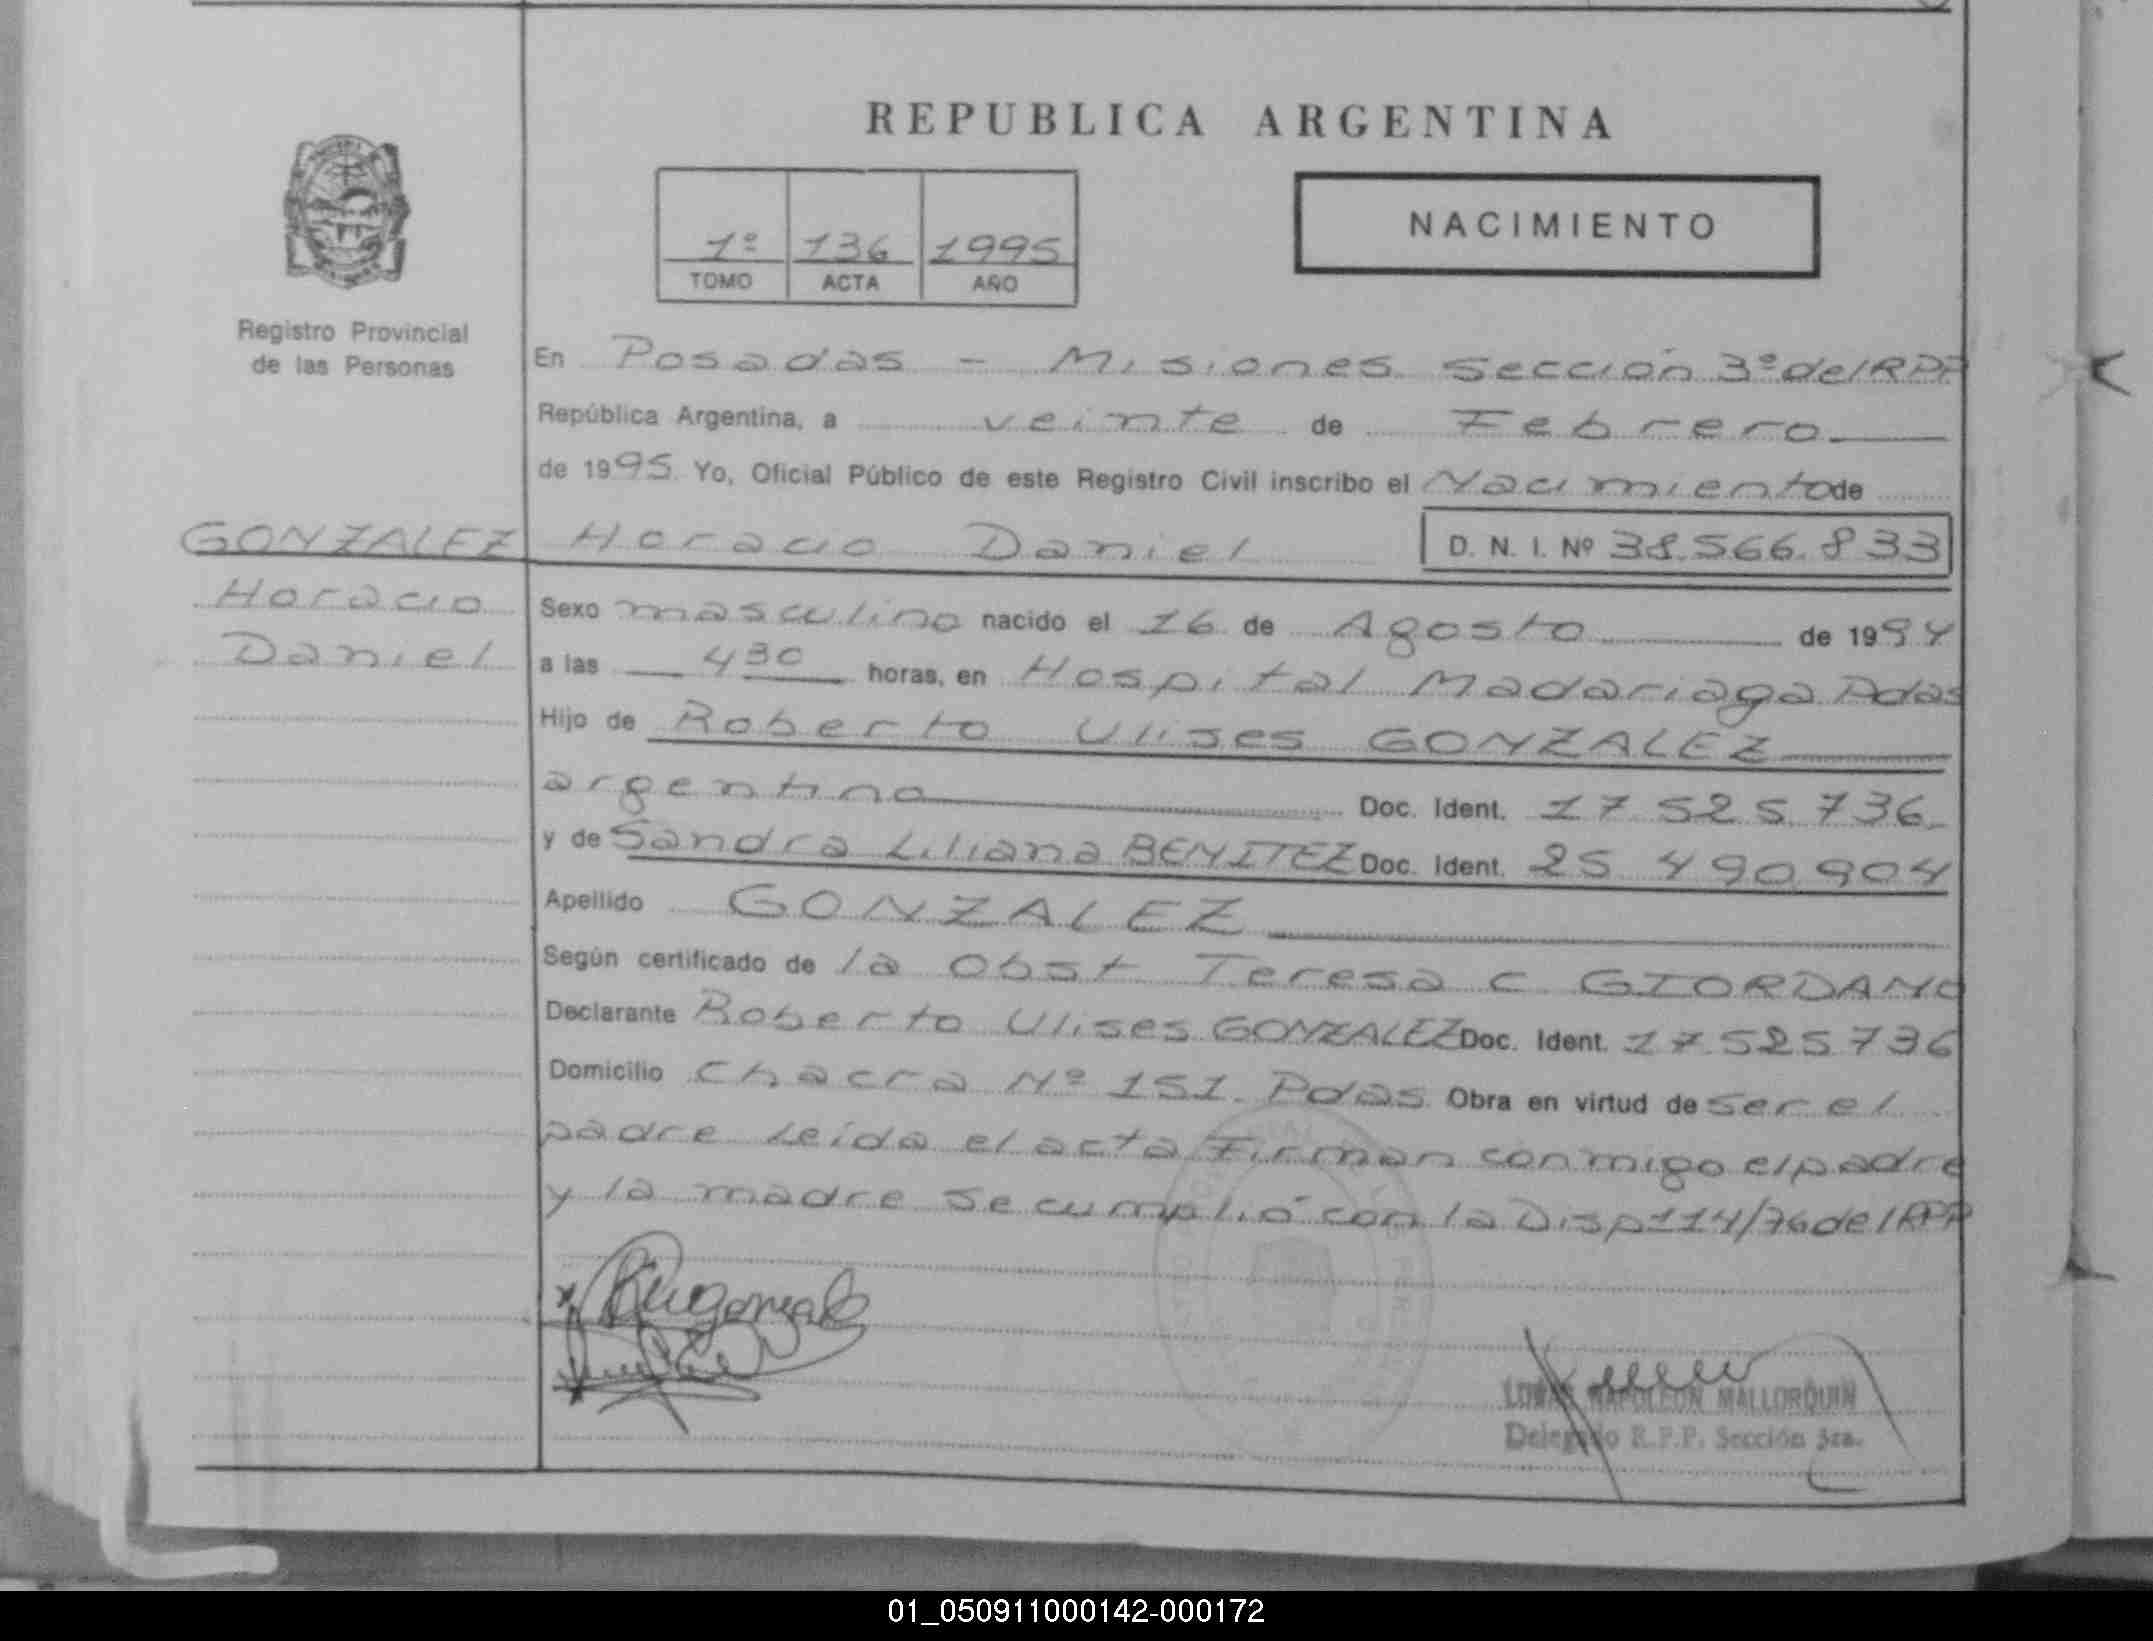 REPUBLICA ARGENTINA
1º 136 1995
TOMO ACTA AÑO
NACIMIENTO
Registro Provincial
de las Personas
En Posadas - Misiones Sección 3º del RPP
República Argentina, a veinte de Febrero
de 1995. Yo, Oficial Público de este Registro Civil inscribo el Nacimiento de
GONZALEZ Horacio Daniel D. N. I. Nº 38.566.833
Horacio
Daniel
Sexo masculino nacido el 16 de Agosto de 1994
a las 4 30 horas, en Hospital Madariaga Pdas
Hijo de Roberto Ulises GONZALEZ
argentino Doc. Ident. 17 525 736
y de Sandra Liliana BENITEZ Doc. Ident. 25 490 904
Apellido GONZALEZ
Según certificado de la Obst Teresa C GIORDANO
Declarante Roberto Ulises GONZALEZ Doc. Ident. 17 525 736
Domicilio Chacra Nº 151 Pdas Obra en virtud de ser el
padre Leída el acta Firman conmigo el padre
y la madre se cumplió con la Disp 114/76 del RPP
NAPOLEON MALLORQUIN
Delegado R.P.P. Sección 3ra.
01_050911000142-000172